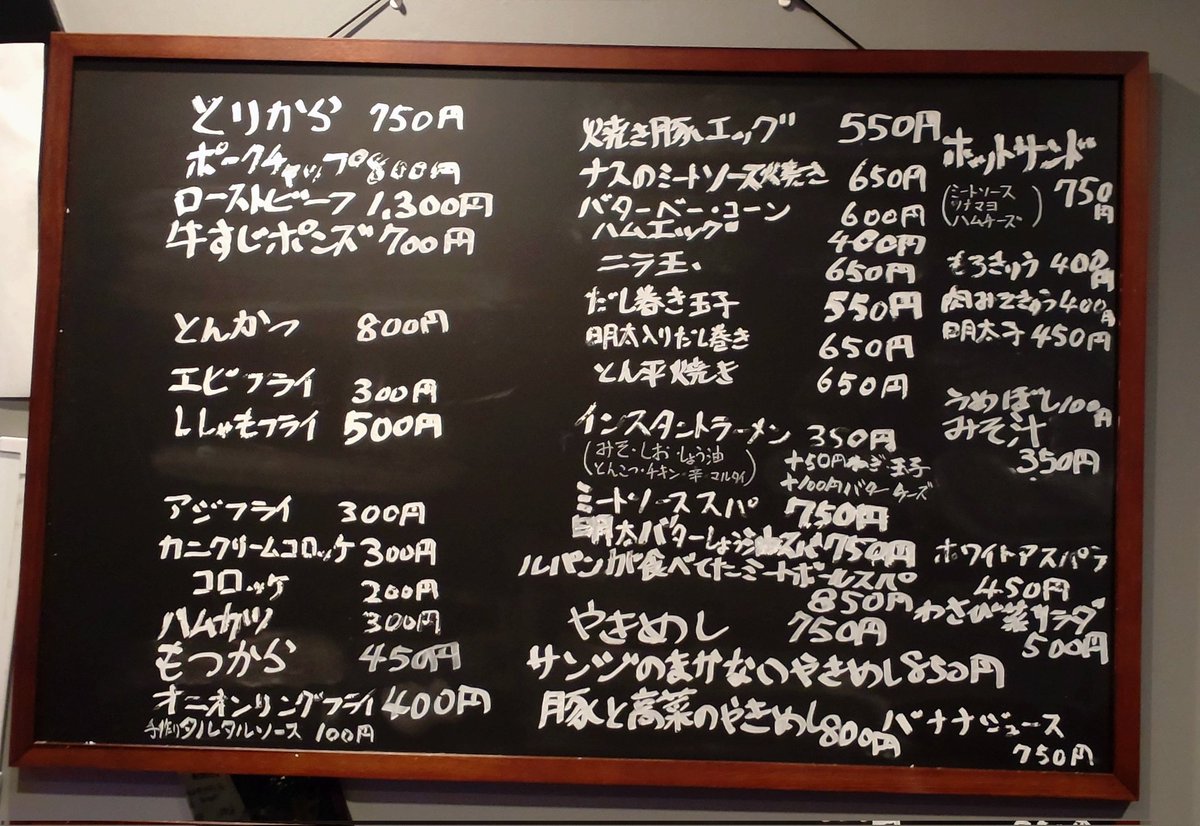 とりから 750円
ポークチャップ 800円
ローストビーフ 1,300円
牛すじポンズ 700円
とんかつ 800円
エビフライ 300円
ししゃもフライ 500円
アジフライ 300円
カニクリームコロッケ 300円
コロッケ 200円
ハムカツ 300円
もつから 450円
オニオンリングフライ 400円
手作りタルタルソース 100円
焼き豚エッグ 550円
ナスのミートソース焼き 650円
バターベー・コーン 600円
ハムエッグ 400円
ニラ玉、 650円
だし巻き玉子 550円
明太入りだし巻き 650円
とん平焼き 650円
インスタントラーメン 350円
(みそ・しお・しょう油
とんこつ・チキン・辛・マルタイ)
+50円ねぎ 玉子
+100円バター チーズ
ミートソーススパ 750円
明太バターしょう油スパ 750円
ルパンが食べてたミートボールスパ
850円
やきめし 750円
サンジのまかないやきめし 850円
豚と高菜のやきめし 800円
ホットサンド
750円
(ミートソース
ツナマヨ
ハムチーズ)
もろきゅう 400円
肉みそきゅう 400円
明太子 450円
うめぼし 100円
みそ汁
350円
ホワイトアスパラ
450円
わさび菜サラダ
500円
バナナジュース
750円